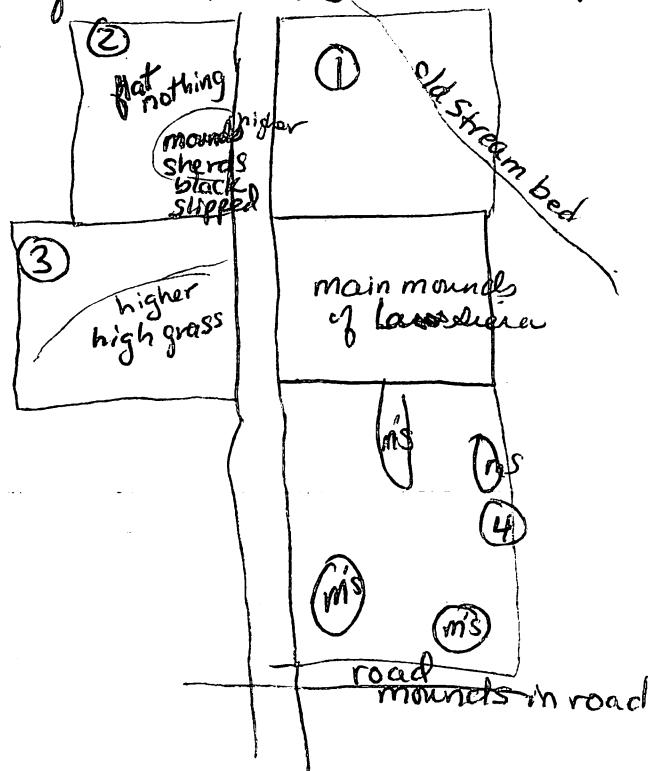 ②
flat
nothing
mounds higher
sherds
black
slipped
①
old stream bed
③
higher
high grass
main mounds
of
m's
m's
④
m's
m's
road
mounds in road